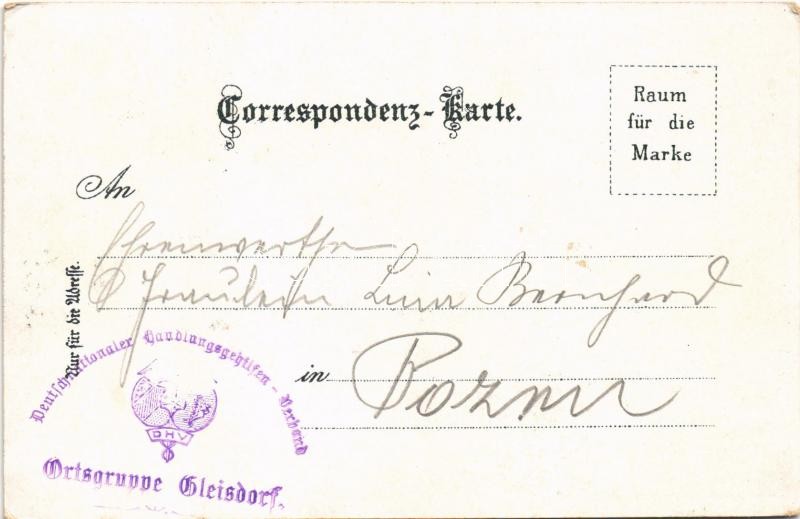 Correspondenz-Karte.
Raum
für die
Marke
An
Ehrenwerthe
Fräulein Lina Bernhard
in Pozen
Nur für die Adresse.
Deutschnationaler Handlungsgehilfen-Verband
DHV
Ortsgruppe Gleisdorf.